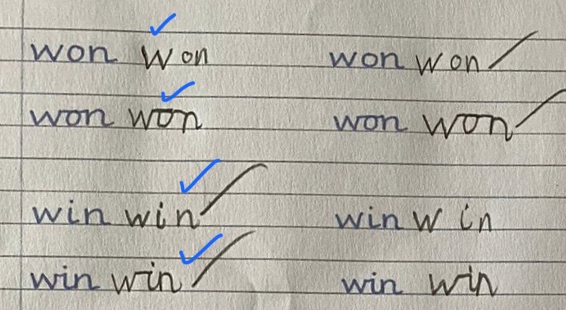 won won won won
won won won won
win win win win
win win win win